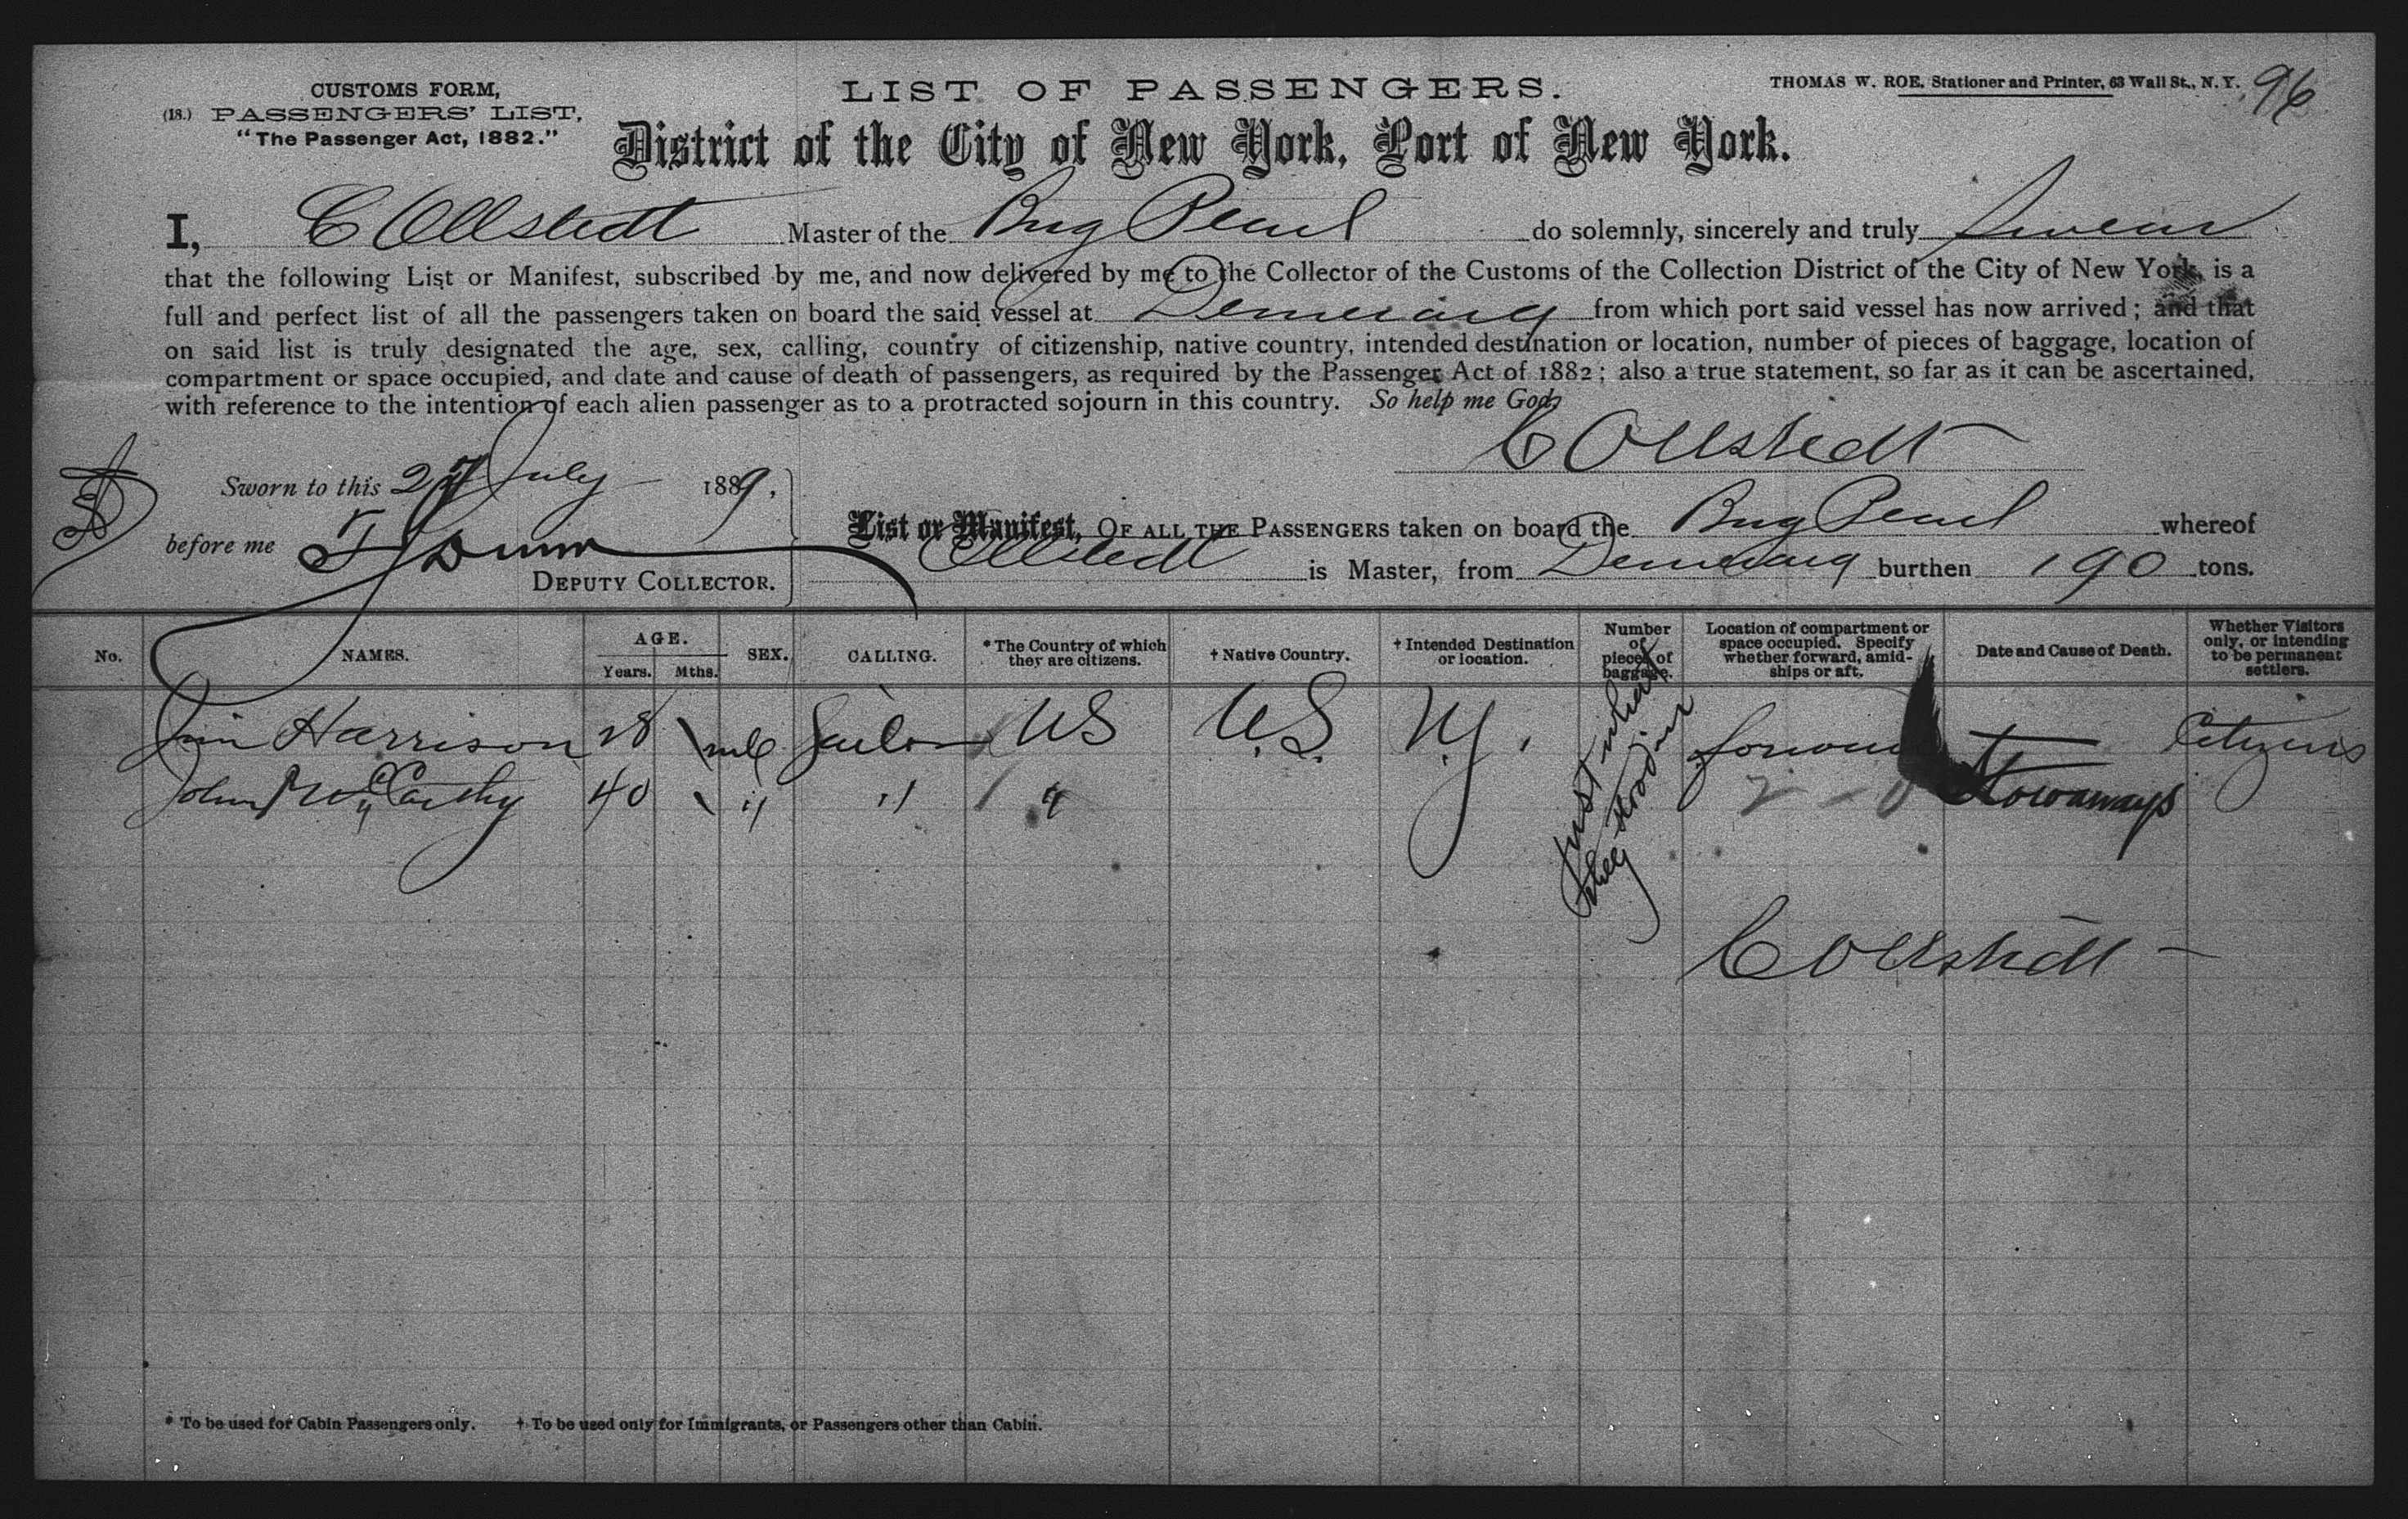 CUSTOMS FORM,
(18.) PASSENGERS' LIST,
"The Passenger Act, 1882."
LIST OF PASSENGERS.
THOMAS W. ROE, Stationer and Printer, 63 Wall St., N. Y. 96
District of the City of New York, Port of New York.
I, C Ollstedt Master of the Brig Pearl do solemnly, sincerely and truly swear
that the following List or Manifest, subscribed by me, and now delivered by me to the Collector of the Customs of the Collection District of the City of New York, is a
full and perfect list of all the passengers taken on board the said vessel at Demerary from which port said vessel has now arrived; and that
on said list is truly designated the age, sex, calling, country of citizenship, native country, intended destination or location, number of pieces of baggage, location of
compartment or space occupied, and date and cause of death of passengers, as required by the Passenger Act of 1882; also a true statement, so far as it can be ascertained,
with reference to the intention of each alien passenger as to a protracted sojourn in this country. So help me God,
C Ollstedt
Sworn to this 27 July 1889,
before me Dunn
DEPUTY COLLECTOR.
List or Manifest, OF ALL THE PASSENGERS taken on board the Brig Pearl whereof
Ollstedt is Master, from Demerary burthen 190 tons.
No. NAMES. AGE. Years. Mths. SEX. CALLING. * The Country of which they are citizens. † Native Country. † Intended Destination or location. Number of pieces of baggage. Location of compartment or space occupied. Specify whether forward, amidships or aft. Date and Cause of Death. Whether Visitors only, or intending to be permanent settlers.
Jim Harrison 28 \ mle Sailor US U.S. N.Y. forward — Citizens
John McCarthy 40 \ " " / " 2 - 0 Stowaways
Just what they stood in
C Ollstedt
* To be used for Cabin Passengers only. † To be used only for Immigrants, or Passengers other than Cabin.